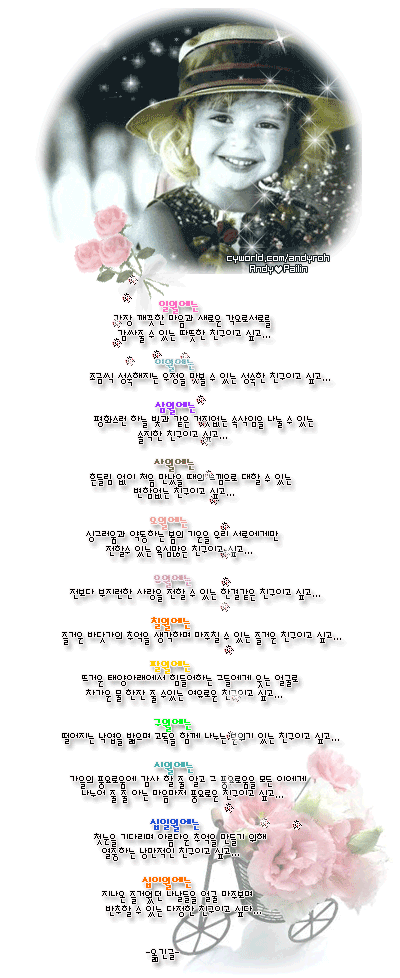 cyworld.com/andyroh
Andy♥Pailin
일월에는
가장 깨끗한 마음과 새로운 각오로서로를
감싸줄 수 있는 따뜻한 친구이고 싶고...
이월에는
조금씩 성숙해지는 우정을 맛볼 수 있는 성숙한 친구이고 싶고...
삼월에는
평화스런 하늘 빛과 같은 거짓없는 속삭임을 나눌 수 있는
솔직한 친구이고 싶고...
사월에는
흔들림 없이 처음 만났을 때의 느낌으로 대할 수 있는
변함없는 친구이고 싶고...
오월에는
싱그러움과 약동하는 봄의 기운을 우리 서로에게만
전할수 있는 욕심많은 친구이고 싶고...
유월에는
전보다 부지런한 사랑을 전할 수 있는 한결같은 친구이고 싶고...
칠월에는
즐거운 바닷가의 추억을 생각하며 마주칠 수 있는 즐거운 친구이고 싶고...
팔월에는
뜨거운 태양아래에서 힘들어하는 그들에게 웃는 얼굴로
차가운 물 한잔 줄 수있는 여유로운 친구이고 싶고...
구월에는
떨어지는 낙엽을 밟으며 고독을 함께 나누는 분위기 있는 친구이고 싶고...
시월에는
가을의 풍요로움에 감사 할 줄 알고 그 풍요로움을 모든 이에게
나누어 줄 줄 아는 마음마저 풍요로운 친구이고 싶고...
십일월에는
첫눈을 기다리며 아름다운 추억을 만들기 위해
열중하는 낭만적인 친구이고 싶고...
십이월에는
지나온 즐거웠던 나날들을 얼굴 마주보며
반추할 수 있는 다정한 친구이고 싶다...
-옮긴글-